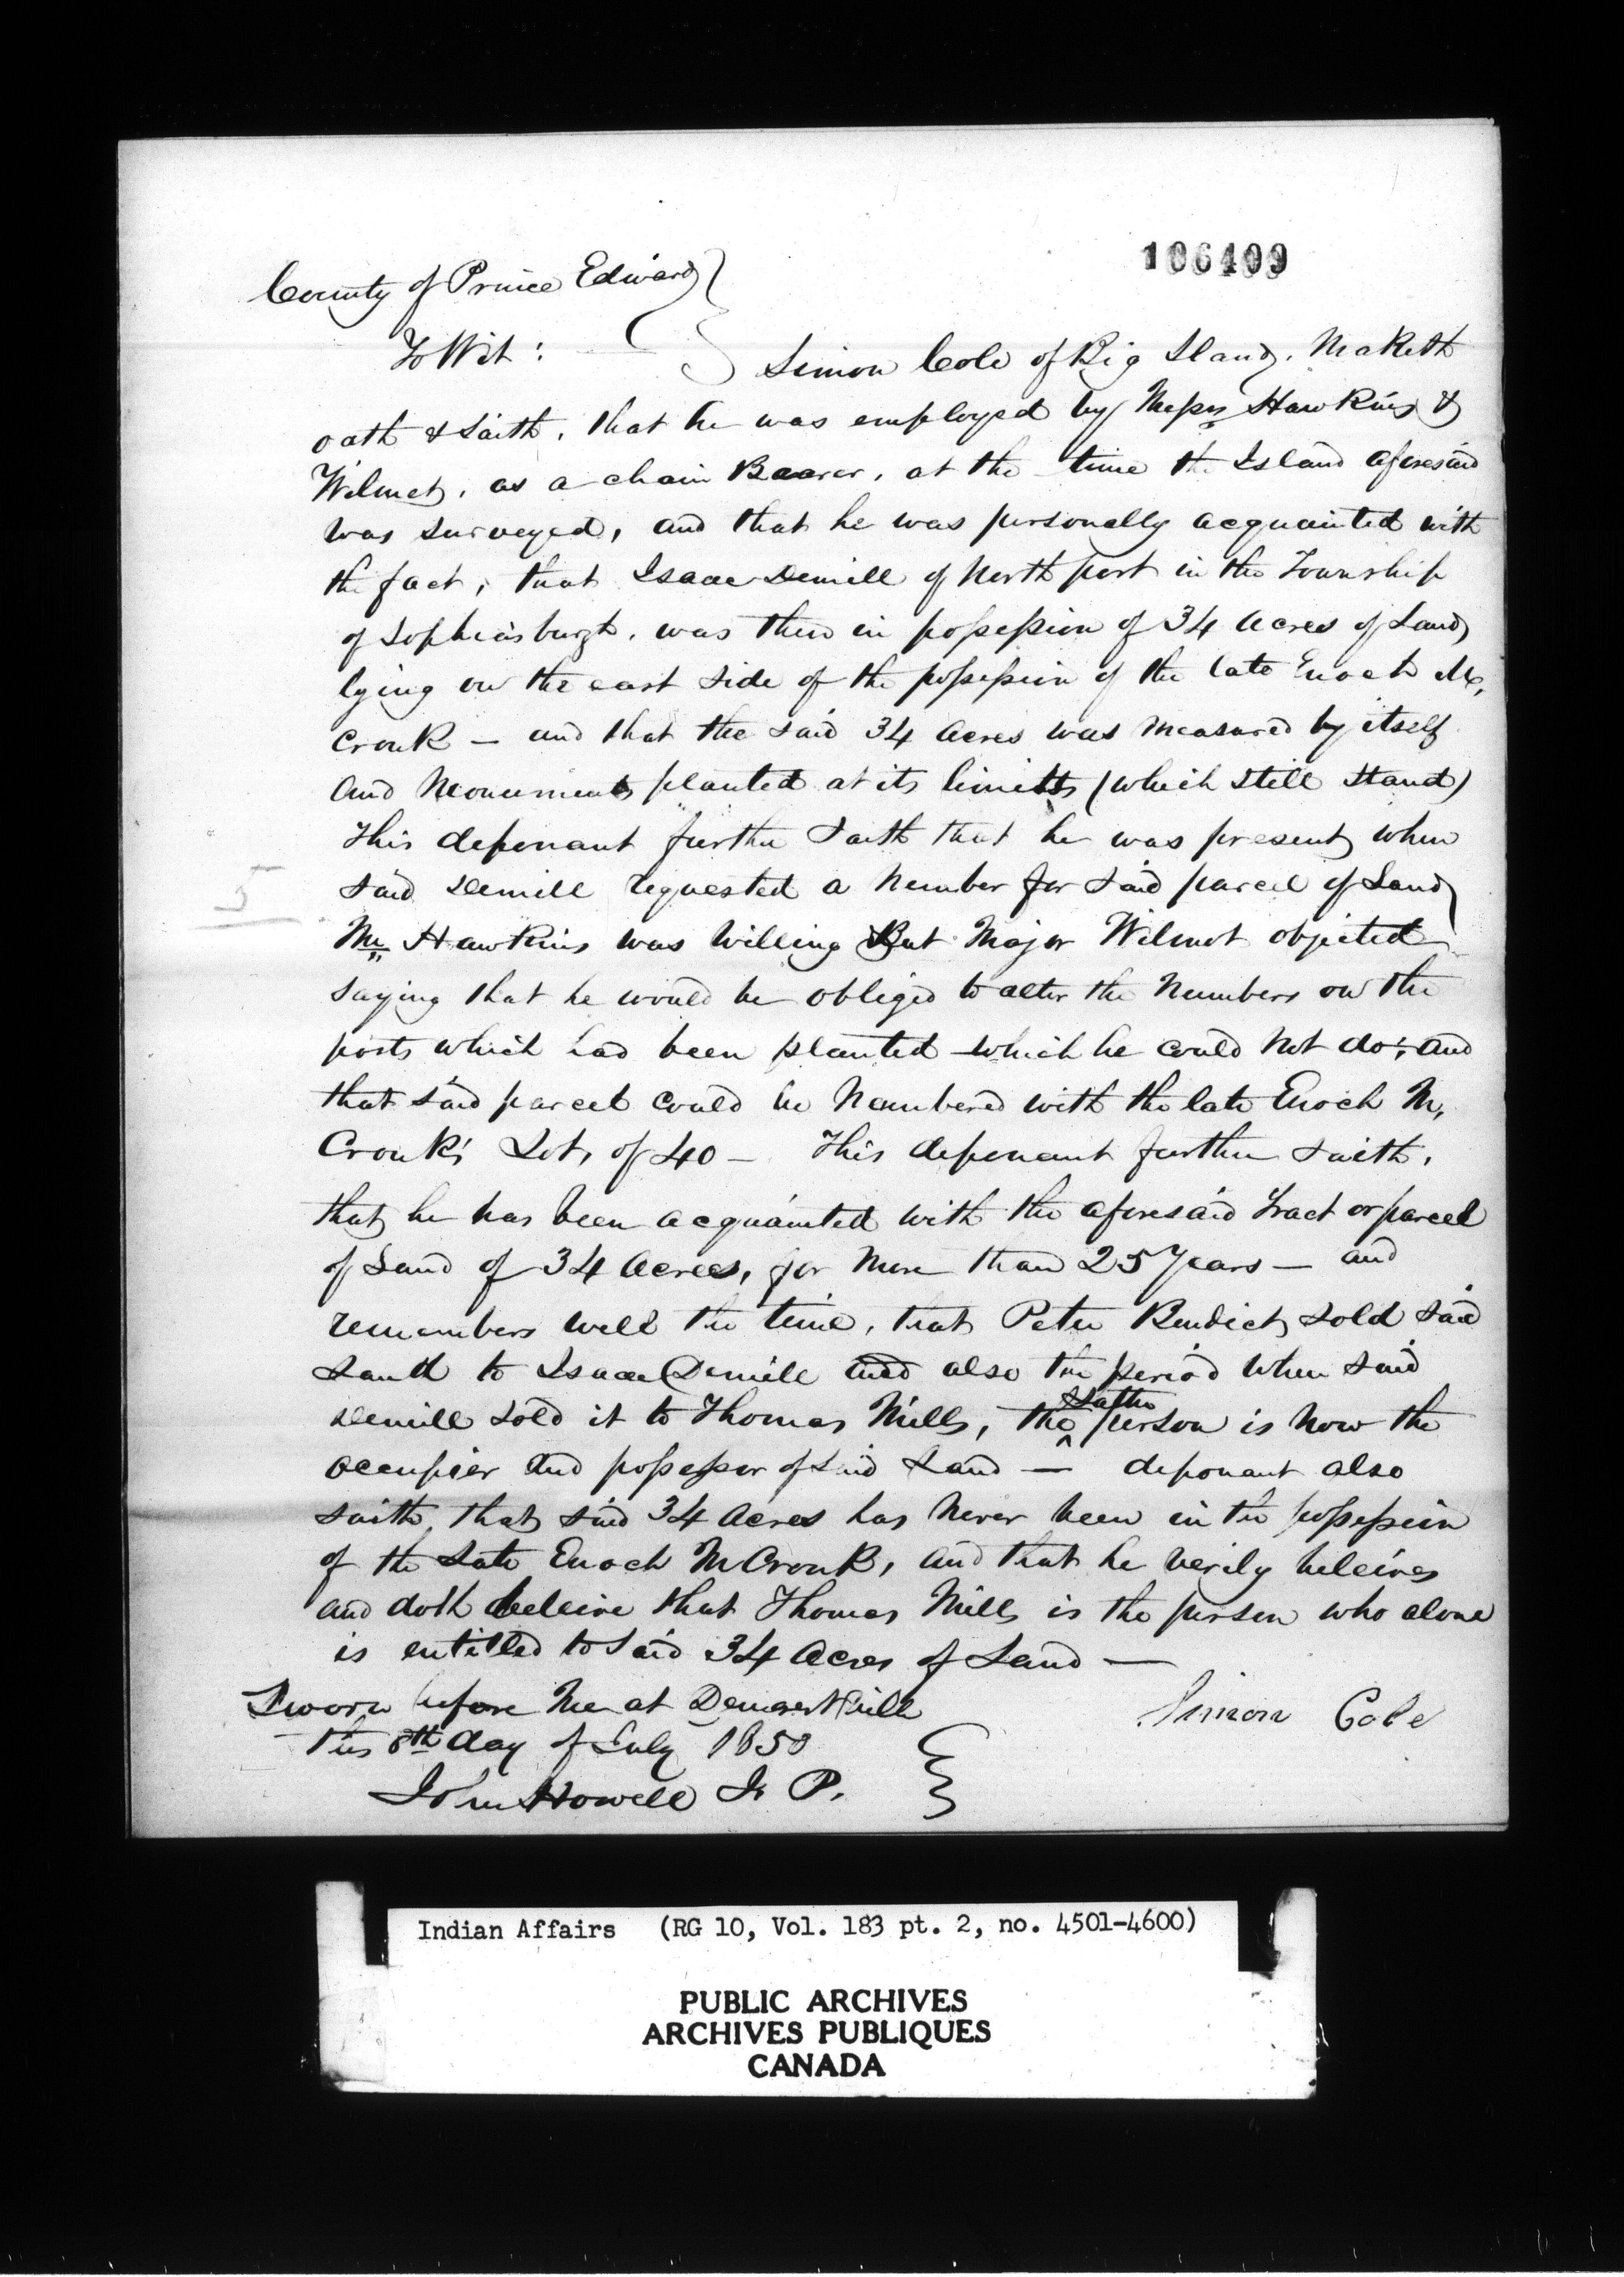 106409
County of Prince Edward }
To Wit : } Simon Cole of Big Island, Maketh
oath & Saith, that he was employed by Messrs Hawkins &
Wilmot, as a chain Bearer, at the time the Island aforesaid
was surveyed, and that he was personally acquainted with
the fact, that Isaac Demill of North port in the Township
of Sophiasburgh, was then in possession of 34 Acres of Land
lying on the east side of the possession of the late Enoch Mc,
Cronk — and that the said 34 Acres was measured by itself
and Monuments planted at its limitts (which still stand)
This deponant further saith that he was present when
said Demill requested a Number for said parcel of Land
Mr. Hawkins was willing But Major Wilmot objected
saying that he would be obliged to alter the Numbers on the
posts which had been planted which he could not do, and
that said parcel could be Numbered with the late Enoch M,
Cronk's Lot, of 40 — This deponant further saith,
that he has been acquainted with the aforesaid Tract or parcel
of Land of 34 Acres, for More than 25 years — and
remembers well the time, that Peter Bendict sold said
Land to Isaac Demill and also the period when said
Demill sold it to Thomas Mills, the ^ latter person is now the
occupier and possessor of said Land — deponant also
saith, that said 34 Acres has never been in the possession
of the Late Enoch McCronk, and that he verily beleives
and doth beleive that Thomas Mills is the person who alone
is entitled to said 34 Acres of Land —
Sworn before Me at Demorestville
this 8th day of July 1850
Simon Cole
John Howell J. P.
Indian Affairs (RG 10, Vol. 183 pt. 2, no. 4501-4600)
PUBLIC ARCHIVES
ARCHIVES PUBLIQUES
CANADA